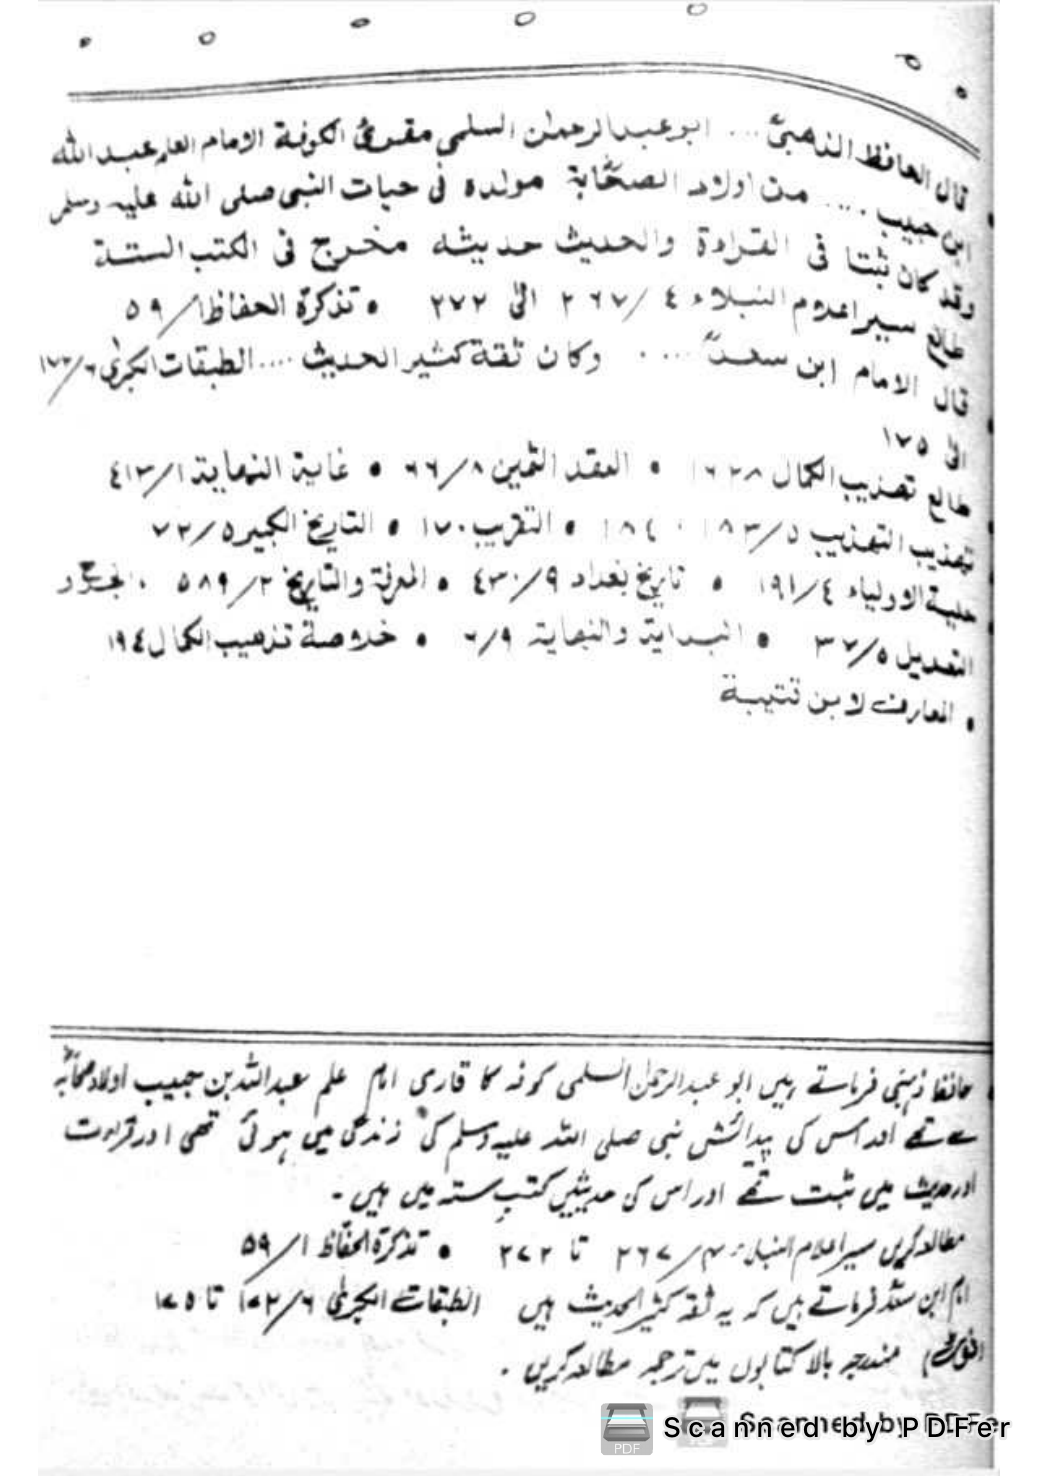 قال الحافظ الذهبیؒ ... ابو عبدالرحمٰن السلمی مقرئ الکوفة الامام العلم عبدالله
ابن حبیب .... من اولاد الصحابة مولده فی حیات النبی صلی الله علیه وسلم
وقد کان ثبتا فی القراءة والحدیث حدیثه مخرج فی الکتب الستة
طالع سیر اعلام النبلاء ٤/ ٢٦٧ الیٰ ٢٧٢ • تذکرة الحفاظ ١/ ٥٩
قال الامام ابن سعدؒ .... وکان ثقة کثیر الحدیث ... الطبقات الکبریٰ ٦/١٧٢
الیٰ ١٧٥
طالع تهذیب الکمال ١٦٢٨ • العقد الثمین ٨/٦٦ • غایة النهایة ١/٤١٣
تهذیب التهذیب ٥/١٨٣ ، ١٨٤ • التقریب ١٧٠ • التاریخ الکبیر ٥/٧٢
حلیة الاولیاء ٤/١٩١ • تاریخ بغداد ٩/٤٣٠ • المعرفة والتاریخ ٢/٥٨٩ • الجرح و
التعدیل ٥/٣٧ • البدایة والنهایة ٩/٦ • خلاصة تذهیب الکمال ١٩٤
• المعارف لابن قتیبة
• حافظ ذہبی فرماتے ہیں ابو عبدالرحمٰن السلمی کوفہ کا قاری امام علم عبداللہ بن حبیب اولاد صحابہؓ
سے تھے اور اس کی پیدائش نبی صلی اللہ علیہ وسلم کی زندگی میں ہوئی تھی اور قراءت
اور حدیث میں ثبت تھے اور اس کی حدیثیں کتب ستہ میں ہیں ۔
مطالعہ کریں سیر اعلام النبلاء ٤/ ٢٦٧ تا ٢٧٢ • تذکرة الحفاظ ١/ ٥٩
امام ابن سعدؒ فرماتے ہیں کہ یہ ثقہ کثیر الحدیث ہیں الطبقات الکبریٰ ٦/١٧٢ تا ١٧٥
(نوٹ) مندرجہ بالا کتابوں میں ترجمہ مطالعہ کریں ۔
Scanned by PDFer